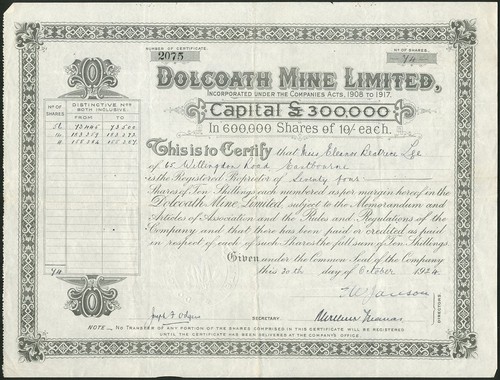 NUMBER OF CERTIFICATE.
2075
Nº OF SHARES.
74
DOLCOATH MINE LIMITED,
INCORPORATED UNDER THE COMPANIES ACTS, 1908 TO 1917.
Capital £300,000
In 600,000 Shares of 10/- each.
Nº OF SHARES
DISTINCTIVE Nos BOTH INCLUSIVE.
FROM TO
74
This is to Certify that Miss Eleanor Beatrice
of 65 Willingdon Road Eastbourne
is the Registered Proprietor of Seventy four
Shares of Ten Shillings each numbered as per margin hereof in the
Dolcoath Mine Limited, subject to the Memorandum and
Articles of Association and the Rules and Regulations of the
Company and that there has been paid or credited as paid
in respect of each of such Shares the full sum of Ten Shillings
Given under the Common Seal of the Company
this 20th day of October 1924
SECRETARY
NOTE.- NO TRANSFER OF ANY PORTION OF THE SHARES COMPRISED IN THIS CERTIFICATE WILL BE REGISTERED
UNTIL THE CERTIFICATE HAS BEEN DELIVERED AT THE COMPANY'S OFFICE.